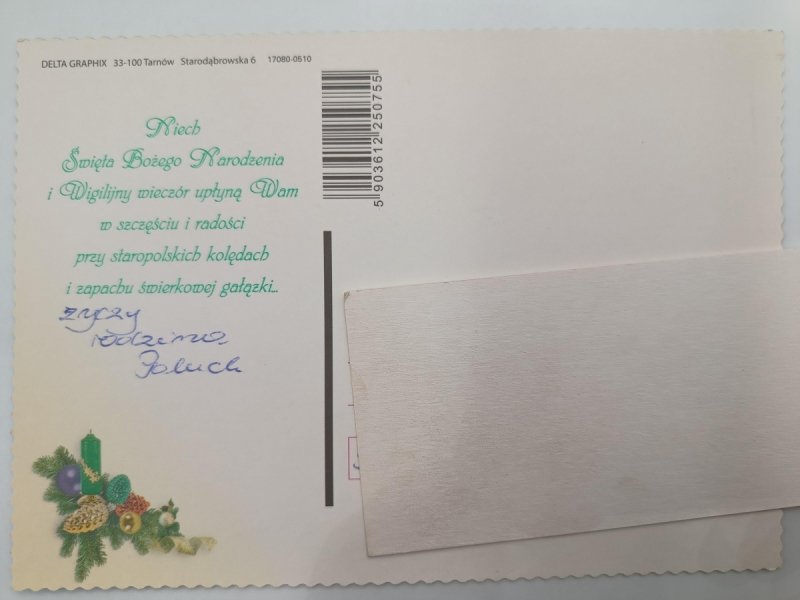 DELTA GRAPHIX 33-100 Tarnów Starodąbrowska 6 17080-0510
Niech
Święta Bożego Narodzenia
i Wigilijny wieczór upłyną Wam
w szczęściu i radości
przy staropolskich kolędach
i zapachu świerkowej gałązki...
życzy
rodzina
5 903612 250755